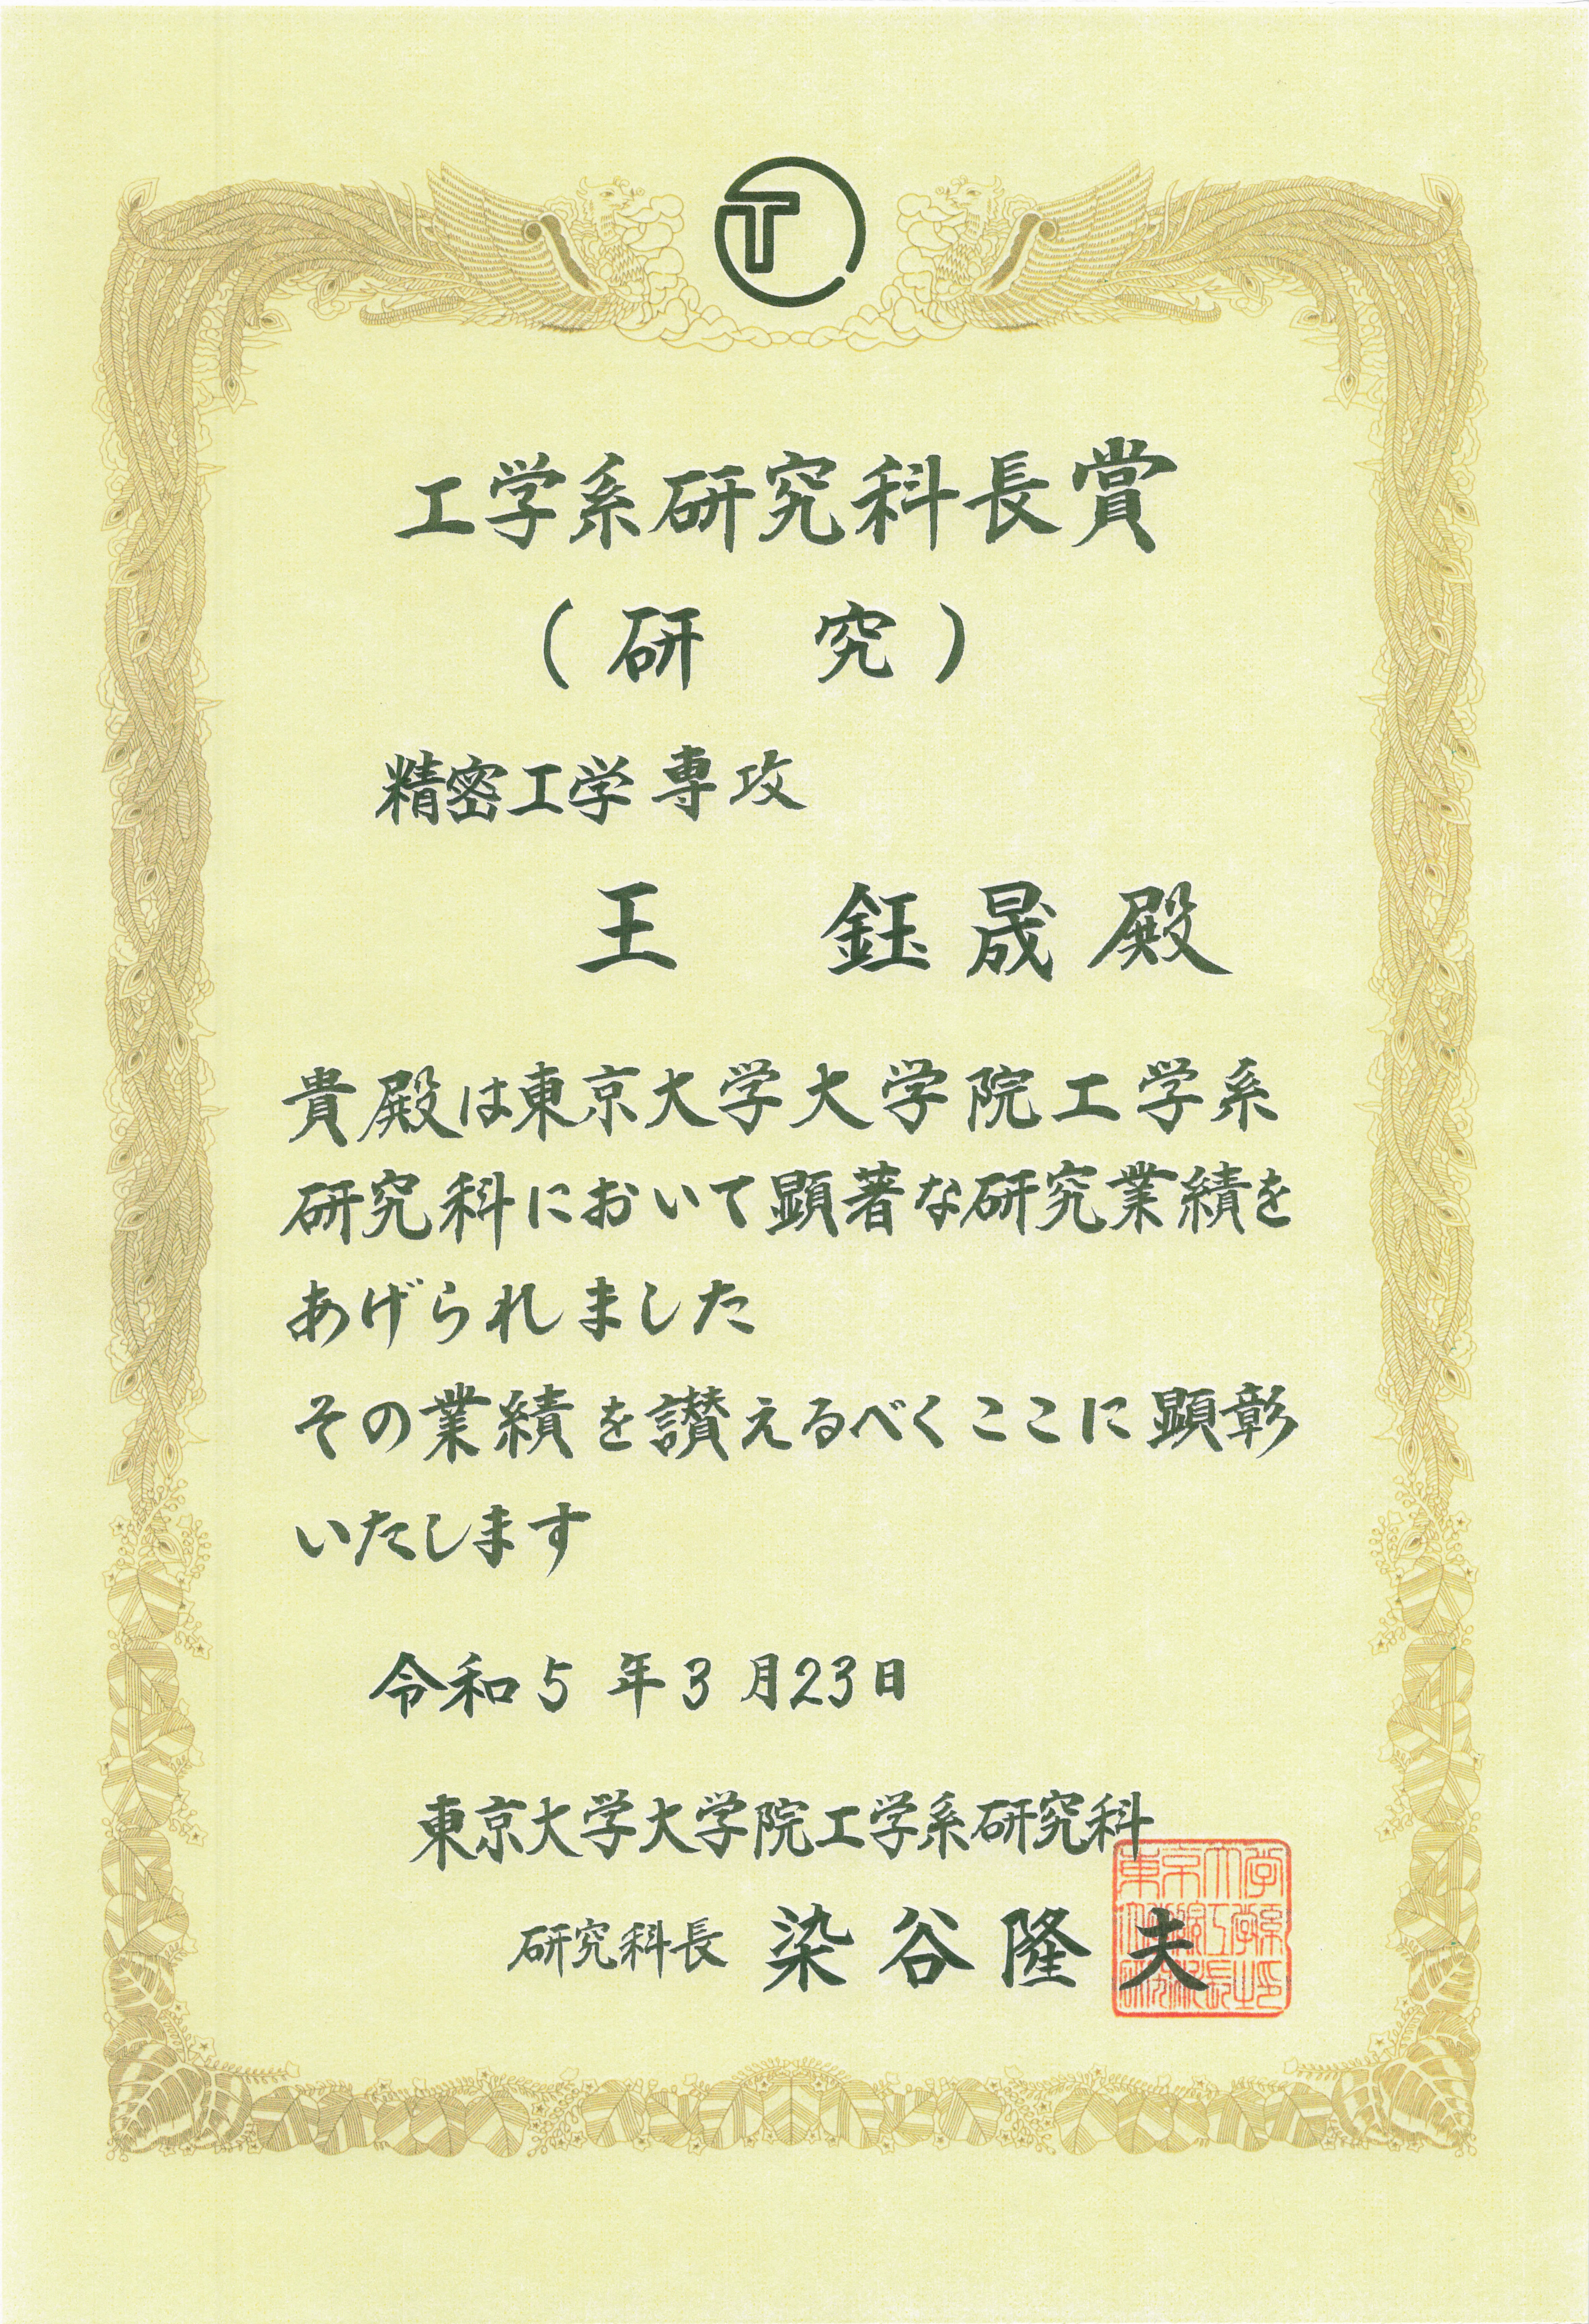 T
工学系研究科長賞
（研　究）
精密工学専攻
王　鈺晟殿
貴殿は東京大学大学院工学系
研究科において顕著な研究業績を
あげられました
その業績を讃えるべくここに顕彰
いたします
令和5年3月23日
東京大学大学院工学系研究科
研究科長 染谷隆夫